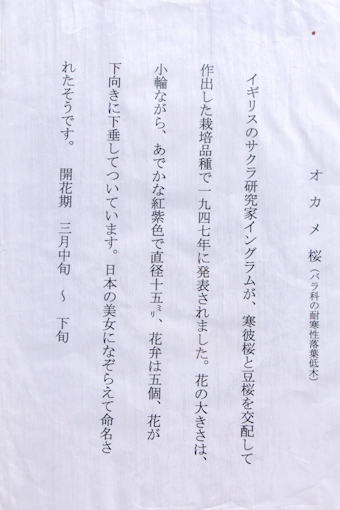 オカメ桜(バラ科の耐寒性落葉低木)
イギリスのサクラ研究家イングラムが、寒彼桜と豆桜を交配して
作出した栽培品種で一九四七年に発表されました。花の大きさは、
小輪ながら、あでかな紅紫色で直径十五㍉、花弁は五個、花が
下向きに下垂してついています。日本の美女になぞらえて命名さ
れたそうです。 開花期 三月中旬 ~ 下旬